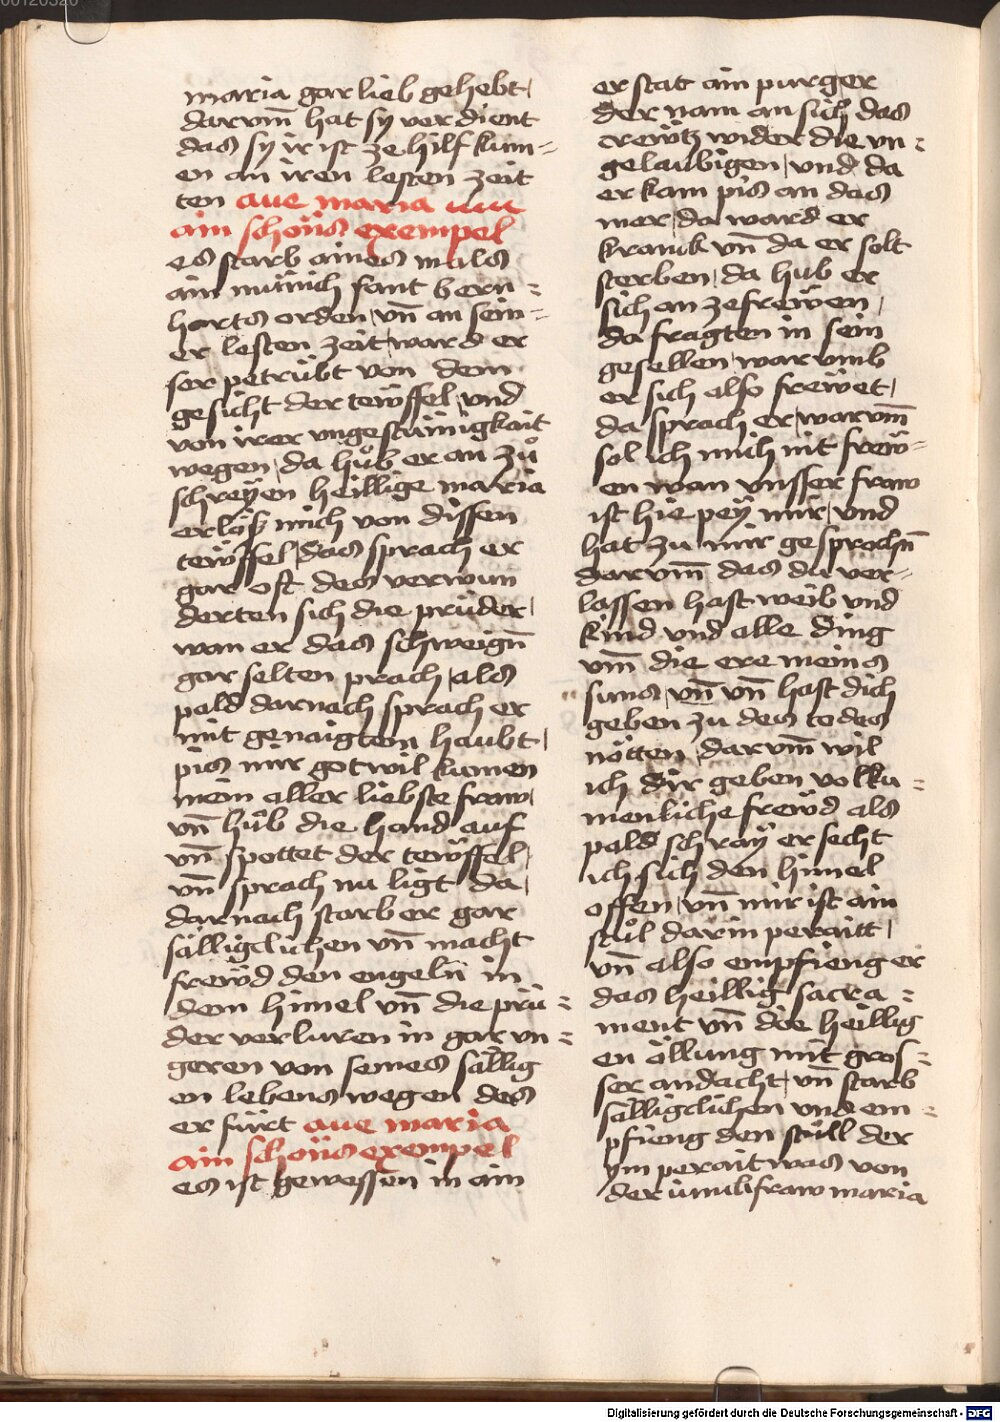 maria gar lieb gehebt /
darvm̄ hat sy verdient
das sy ir ist ze hilf kum =
en an iren lesten zeit
ten aue maria
ain schöns exempel
es starb aines mals
ain münich sant bern =
harts orden / vn̄ an sein =
er lesten zeit / ward er
ser petrübt von dem
gesicht der tewffel / vnd
von irer vngestümigkait
wegen / da hůb er an zů
schreyen heillige maria
erlös mich von dissen
tewffel / das sprach er
gar oft des verwun
derten sich die prüder /
wan er das schweign̄
gar selten prach / als
pald darnach sprach er
mit genaigtem haubt /
pis mir got wil kumen
mein aller liebste fraw /
vn̄ hůb die hand auf
vn̄ spottet der tewffel /
vn̄ sprach nu ligt da /
darnach starb er gar
sälligclichen vn̄ macht
frewd den engeln̄ in
dem himel vn̄ die prü =
der verluren in gar vn =
geren von seines sällig
en lebens wegen des
er fürt aue maria
ain schöns exempel
es ist gewessen in ain
er stat ain purger
der nam an sich das
crewtz wider die vn =
gelaubigen / vnd da
er kam pis an das
mer / da ward er
kranck vn̄ da er solt
sterben / da hub er
sich an ze frewen /
da fragten in sein
gesellen / warumb
er sich also frewet /
da sprach er / warvm̄
sol ich mich nit frew =
en wan vnsser fraw
ist hie pey mir / vnd
hat zu mir gesprochn̄
darvm̄ das du ver =
lassen hast weib vnd
kind vnd alle ding
vm̄ die ere meins
suns / vn̄ vn̄ hast dich
geben zu des todes
nötten / darvm̄ wil
ich dir geben volku =
menliche frewd als
pald schray er secht
ich sich den himel
offen / vn̄ mir ist ain
stůl darin peraitt /
vn̄ also empfieng er
das heillig sacra =
ment vn̄ die heillig
en öllung mit gros =
ser andacht / vn̄ starb
sälligclichen vnd em =
pfieng den stůll der
ym perait was von
der iunckfraw maria
Digitalisierung gefördert durch die Deutsche Forschungsgemeinschaft - DFG